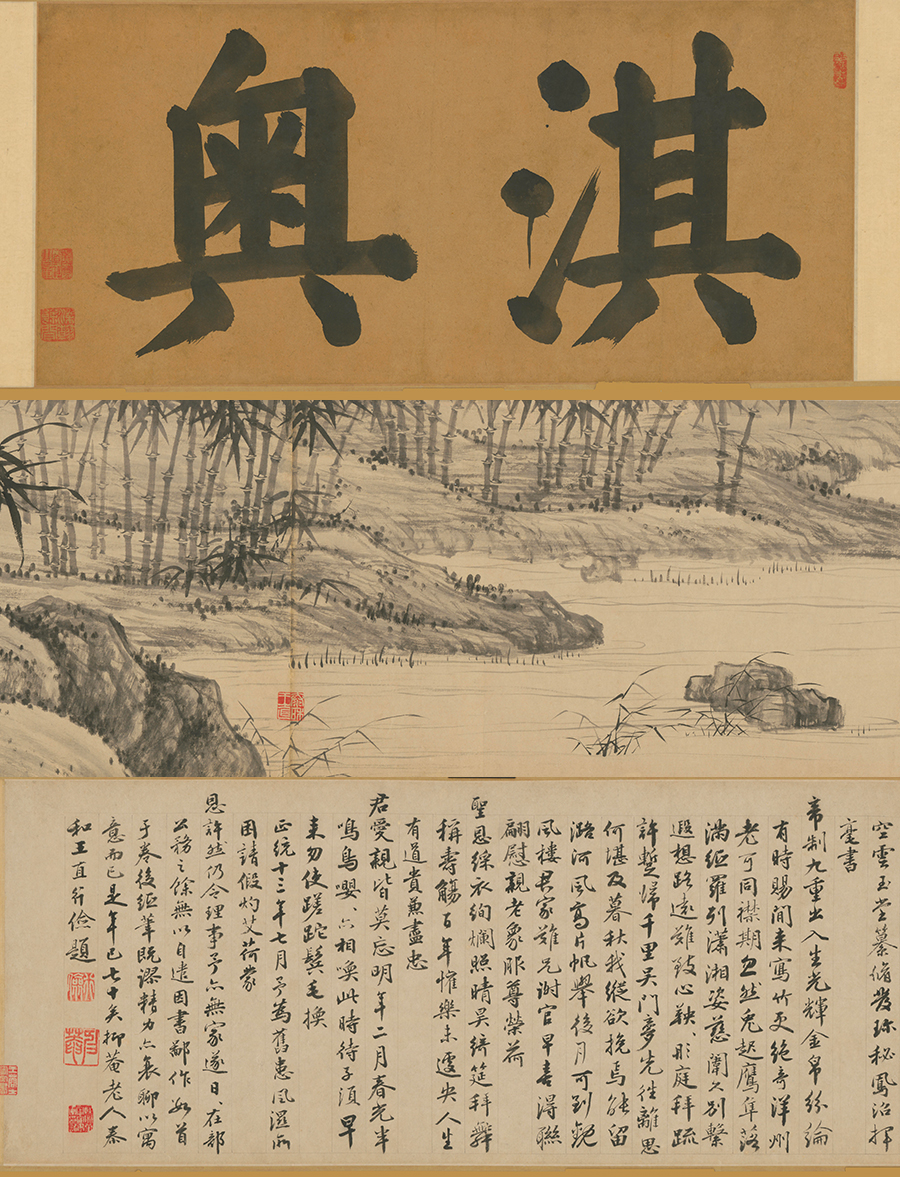 淇奧
空雲玉堂纂脩發珎秘鳳沼揮
毫書
帝制九重出入生光輝金帛紛綸
有時賜間来寫竹更絕奇洋州
老可同襟期忽然兔起鷹隼落
滿絙羅列瀟湘姿慈闈久別繫
遐想路遠雖致心鞅彤庭拜疏
許蹔歸千里吳門夢先往離思
何堪及暮秋我縱欲挽焉能留
潞河風高片帆舉後月可到觀
風樓君家難兄謝官早喜得聯
翩慰親老象服尊榮荷
聖恩綵衣絢爛照晴昊綺筵拜舞
稱壽觴百年懽樂未遽央人生
有道貴兼盡忠
君愛親皆莫忘明年二月春光半
鳴鳥嚶、亦相喚此時待子須早
来勿使蹉跎鬢毛換
正統十三年七月予為舊患風濕所
困請假灼艾荷蒙
恩許然仍令理事予亦無家遂日、在部
公務之餘無以自遣因書鄙作如首
于卷後絙筆既謬精力亦衰聊以寓
意而已是年已七十矣抑菴老人泰
和王直行儉題